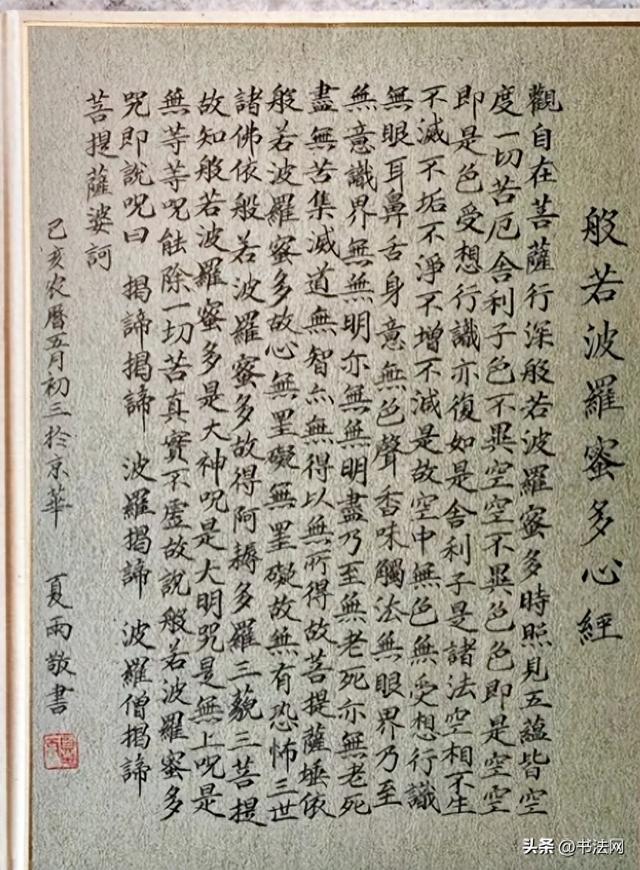 般若波羅蜜多心經
觀自在菩薩行深般若波羅蜜多時照見五蘊皆空
度一切苦厄舍利子色不異空空不異色色即是空空
即是色受想行識亦復如是舍利子是諸法空相不生
不滅不垢不淨不增不減是故空中無色無受想行識
無眼耳鼻舌身意無色聲香味觸法無眼界乃至
無意識界無無明亦無無明盡乃至無老死亦無老死
盡無苦集滅道無智亦無得以無所得故菩提薩埵依
般若波羅蜜多故心無罣礙無罣礙故無有恐怖三世
諸佛依般若波羅蜜多故得阿耨多羅三藐三菩提
故知般若波羅蜜多是大神呪是大明咒是無上呪是
無等等呪能除一切苦真實不虛故說般若波羅蜜多
咒即說呪曰 揭諦揭諦 波羅揭諦 波羅僧揭諦
菩提薩婆訶
己亥农曆五月初三於京華 夏雨敬書
头条 @书法网